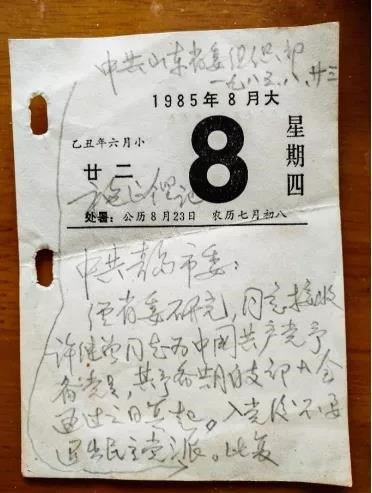 中共山东省委组织部
一九八五.八.廿三
1985年8月大
乙丑年六月小
廿二
8
星期四
处暑：公历8月23日 农历七月初八
中共青岛市委：
经省委研究，同意接收
许继曾同志为中国共产党予
备党员，其予备期自支部大会
通过之日算起。入党后不要
退出民主党派。此复